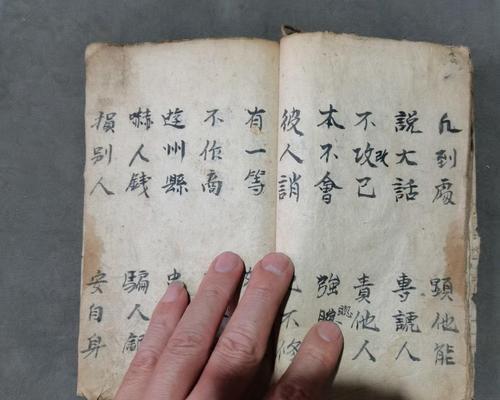 凡到處 顯他能
說大話 專諕人
不攻改己 責他人
本不會 強
彼人誚 不修
有一等
不作商
遊州縣
嚇人錢 騙人
損別人 安自身